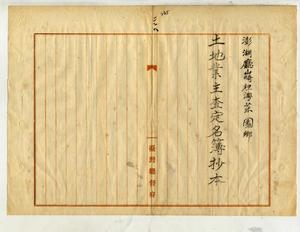 澎湖廳嵵裡澳菜園鄉
土地業主查定名簿抄本
臺灣總督府